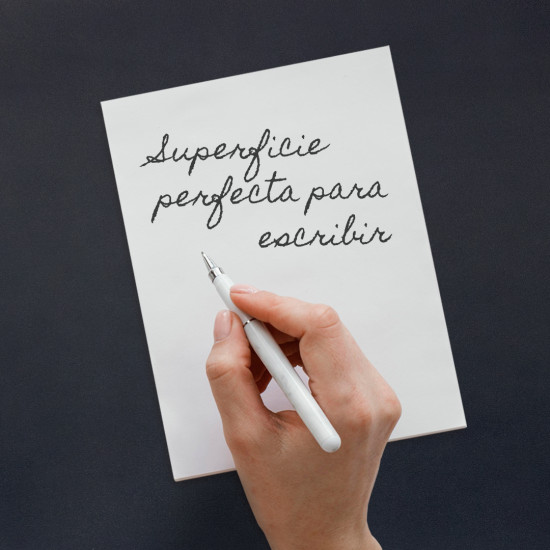 Superficie
perfecta para
escribir